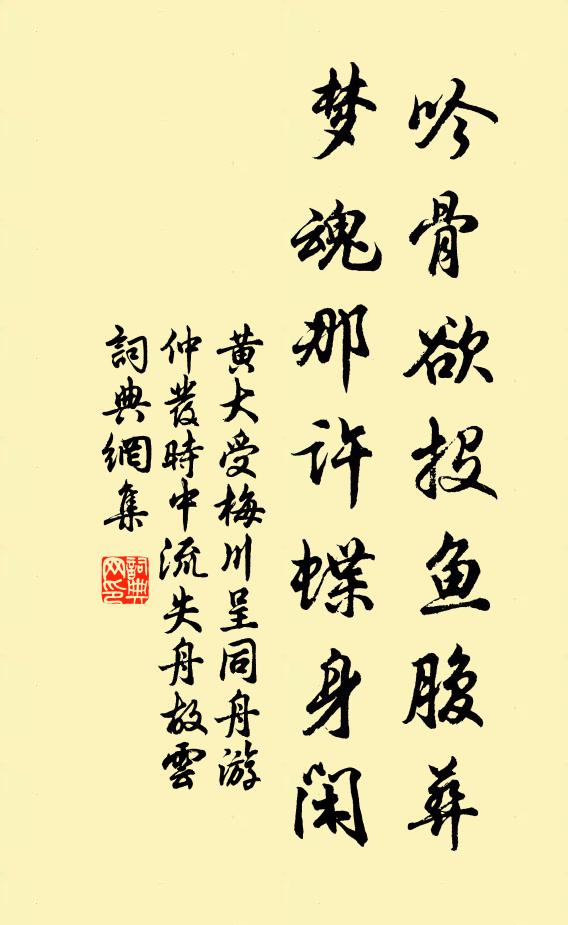 吟骨欲投鱼腹葬
梦魂那许蝶身闲
黄大受梅川呈同舟游
仲發時中流失舟故雲
詞典網集
詞典网印